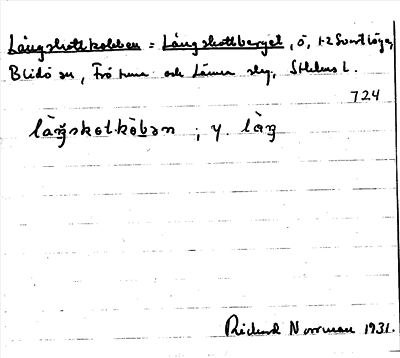 Långskottkobben = Långskottberget, ö, 1-2
Blidö sn, Frö och Länna slg, Sthlms l.
724
långskotkòbən ; y. lång
Richard Norrman 1931.